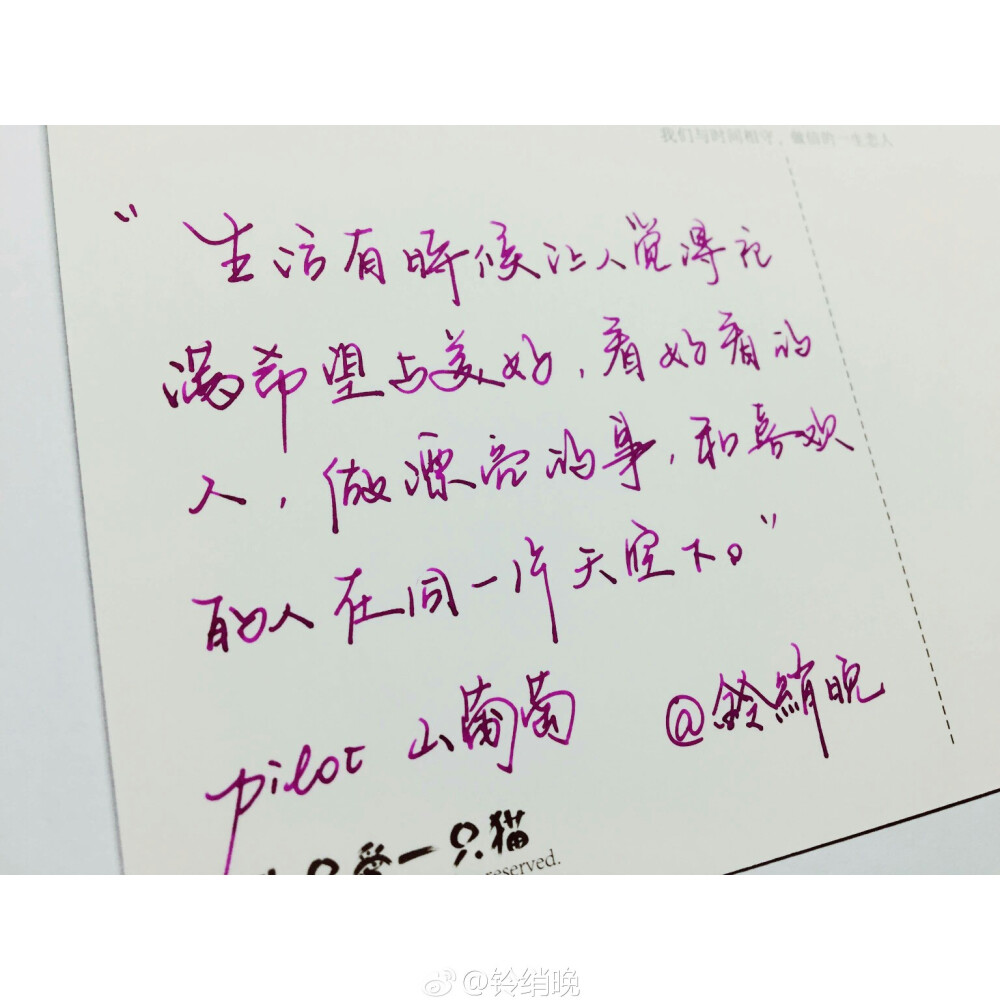 我们与时间相守，做彼的一生恋人
“生活有时候让人觉得充
满希望与美好，看好看的
人，做漂亮的事，和喜欢
的人在同一片天空下。”
pilot 山葡萄 @鈴綃晚
只爱一只猫
reserved.
@铃绡晚